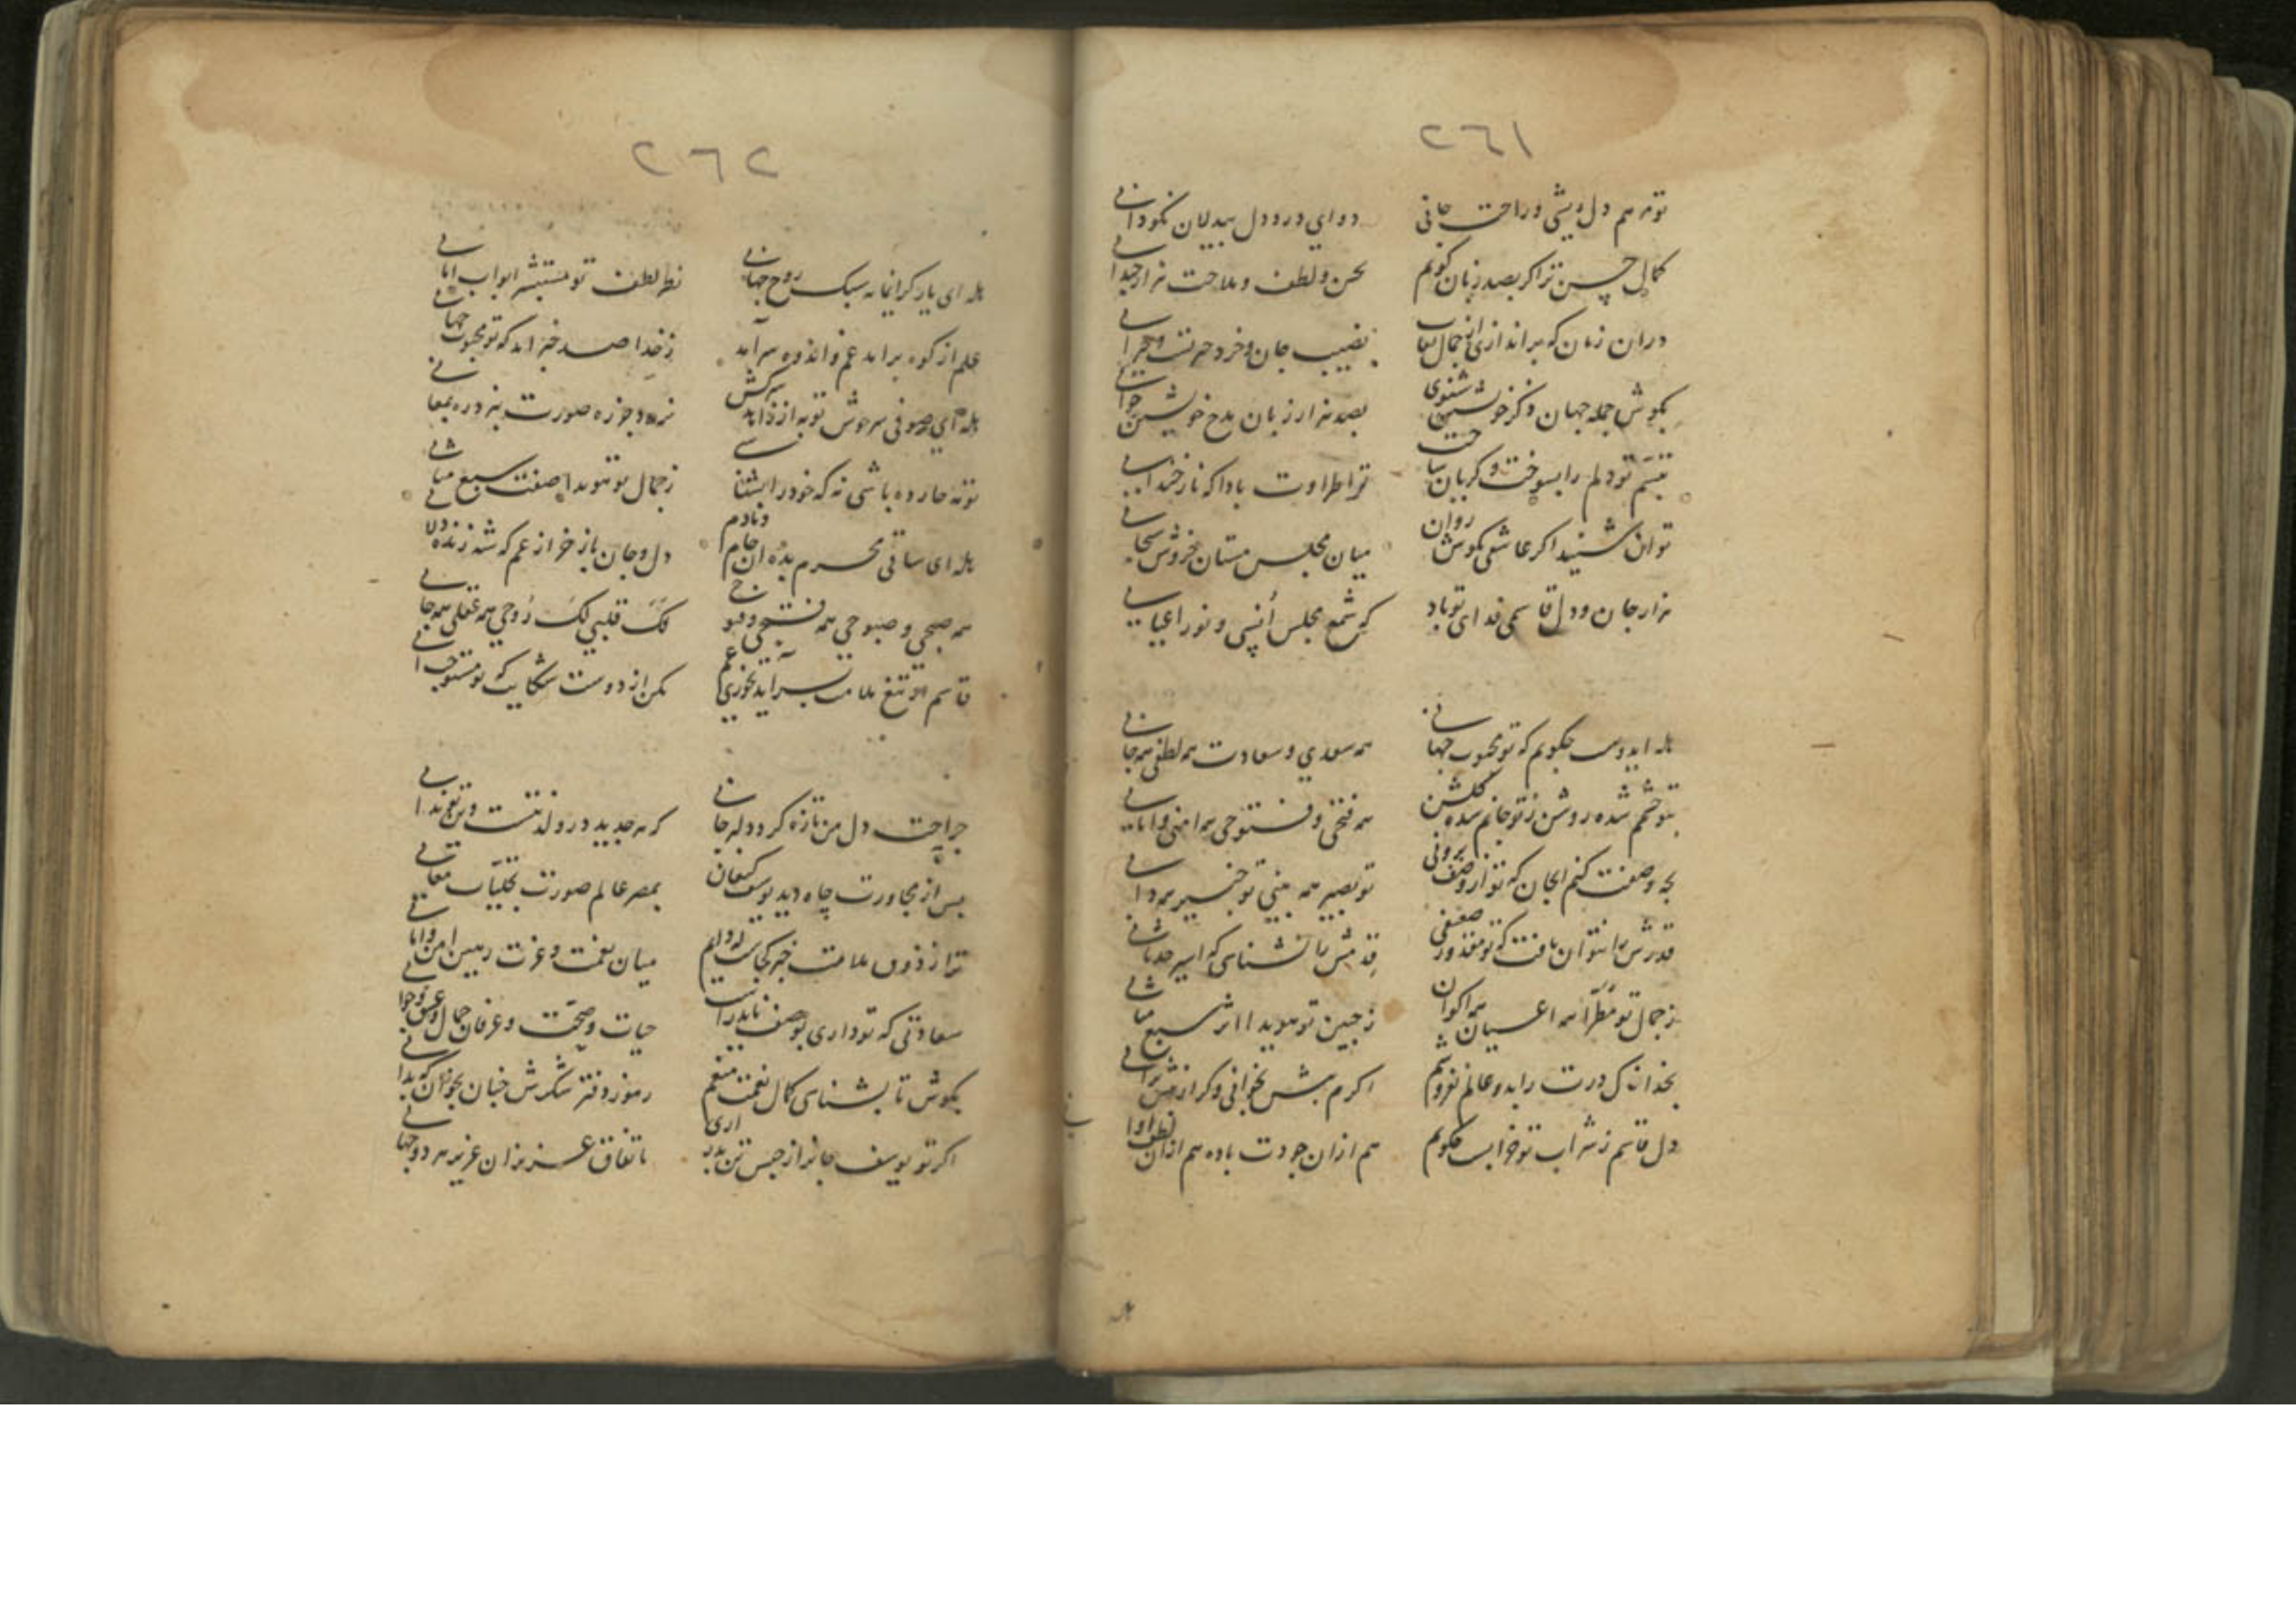 ٢٦١
تو مرهم دل ریشی و راحت جانی
دوای درد دل بیدلان نکو دانی
کمال حسن ترا گر بصد زبان گویم
بحسن و لطف و ملاحت هزار چندانی
دران زمان که براندازی از جمال نقاب
نصیب جان و خرد حیرتست و حیرانی
بگوش جمله جهان ذکر خویشتن شنوی
بصد هزار زبان مدح خویشتن خوانی
تبسم تو دلم را بسوخت و گریان ساخت
ترا طراوت بادا که نار خندانی
توان شنید اگر عاشقی بگوش روان
میان مجلس مستان خروش سبحانی
هزار جان و دل قاسمی فدای تو باد
که شمع مجلس انسی و نور اعیانی
هله ای دوست چگویم که تو محبوب جهانی
همه سعدی و سعادت همه لطفی همه جانی
بتو چشمم شده روشن ز تو جانم شده گلشن
همه فتحی و فتوحی همه امنی و امانی
بچه وصفت کنم ای جان که تو از وصف برونی
تو بصیر همه بینی تو خبیر همه دانی
قدرش را نتوان یافت که تو مقدور ضعیفی
قدمش را نشناسی که اسیر حدثانی
ز جمال تو مطرا همه اعیان همه اکوان
ز جبین تو هویدا اثر سبع مثانی
بخدا خاک درت را بدو عالم نفروشم
اگرم پیش بخوانی وگر از پیش برانی
دل قاسم ز شراب تو خرابست چگویم
هم ازان جودت باده هم ازان لطف اوانی
٢٦٢
هله ای یار گرانمایه سبک روح جهانی
نظر لطف تو مستبشر ابواب امانی
علم از کوه برآمد غم و اندوه سرآمد
ز خدا صد خبر آمد که تو محبوب جهانی
هله ای صوفی سرخوش توبه از زاهد سرکش
ز جمال تو هویدا صفت سبع مثانی
هله ای ساقی محرم بده آن جام دمادم
دل و جان باز خر از غم که شه زنده دلانی
همه صبحی و صبوحی همه فتحی و فتوحی
لک قلبی لک روحی همه عقلی همه جانی
قاسم ار تیغ ملامت بسر آید نخوری غم
مکن از دوست شکایت که تو مستوجب آنی
جراحت دل من تازه کرد دلبر جانی
که هر جدید درو لذتست و تو دانی
پس از مجاورت چاه دید یوسف کنعان
بمصر عالم صورت تجلیات معانی
ترا ز ذوق ملامت خبر کجاست که دایم
میان نعمت و عزت رهین امن و امانی
سعادتی که تو داری بوصف ناید راست
حیات و صحت و عرفان جمال و عشق و جوانی
بکوش تا بشناسی کمال نعمت منعم
رموز دفتر شکرش چنان بخوان که بدانی
اگر تو یوسف جانرا ز حبس تن بدر آری
باتفاق عزیزان عزیز هر دو جهانی